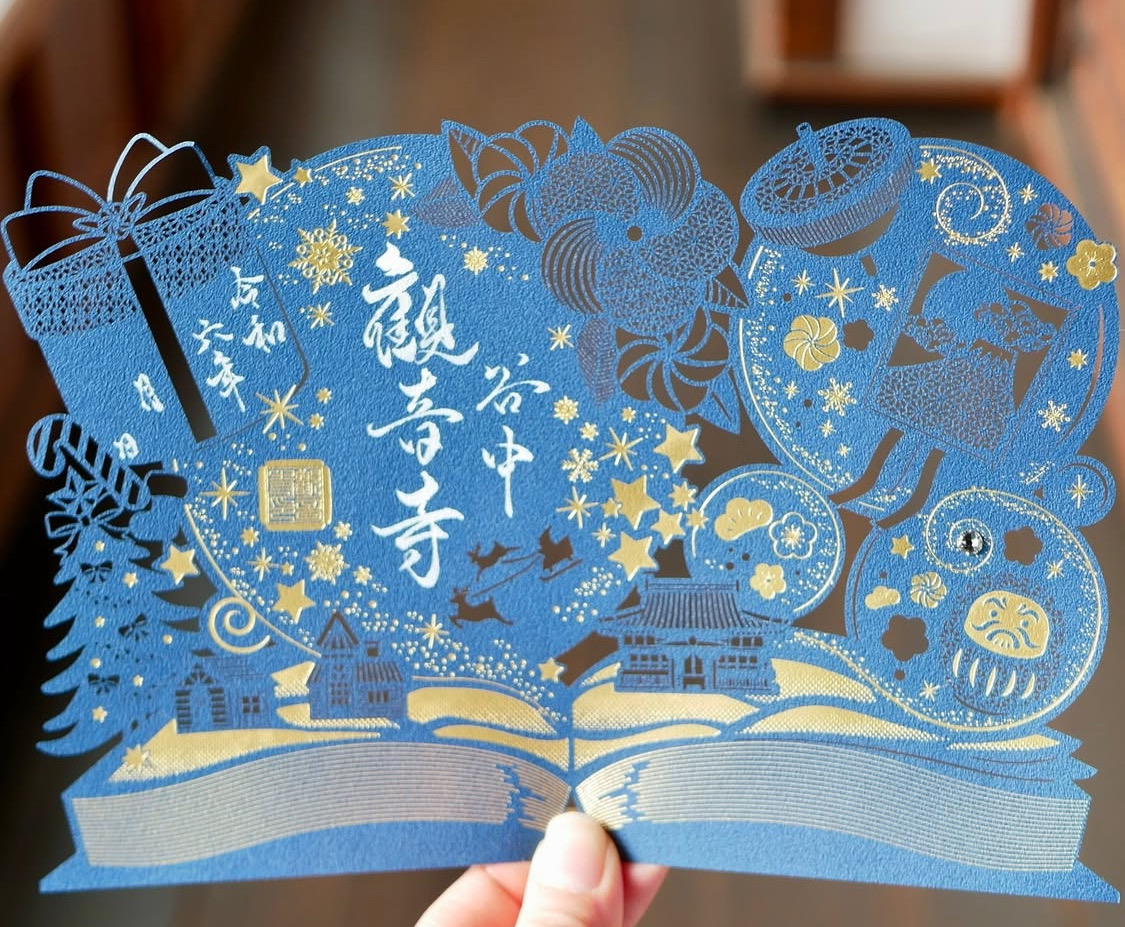 谷中
觀音寺
令和
六年
月
日